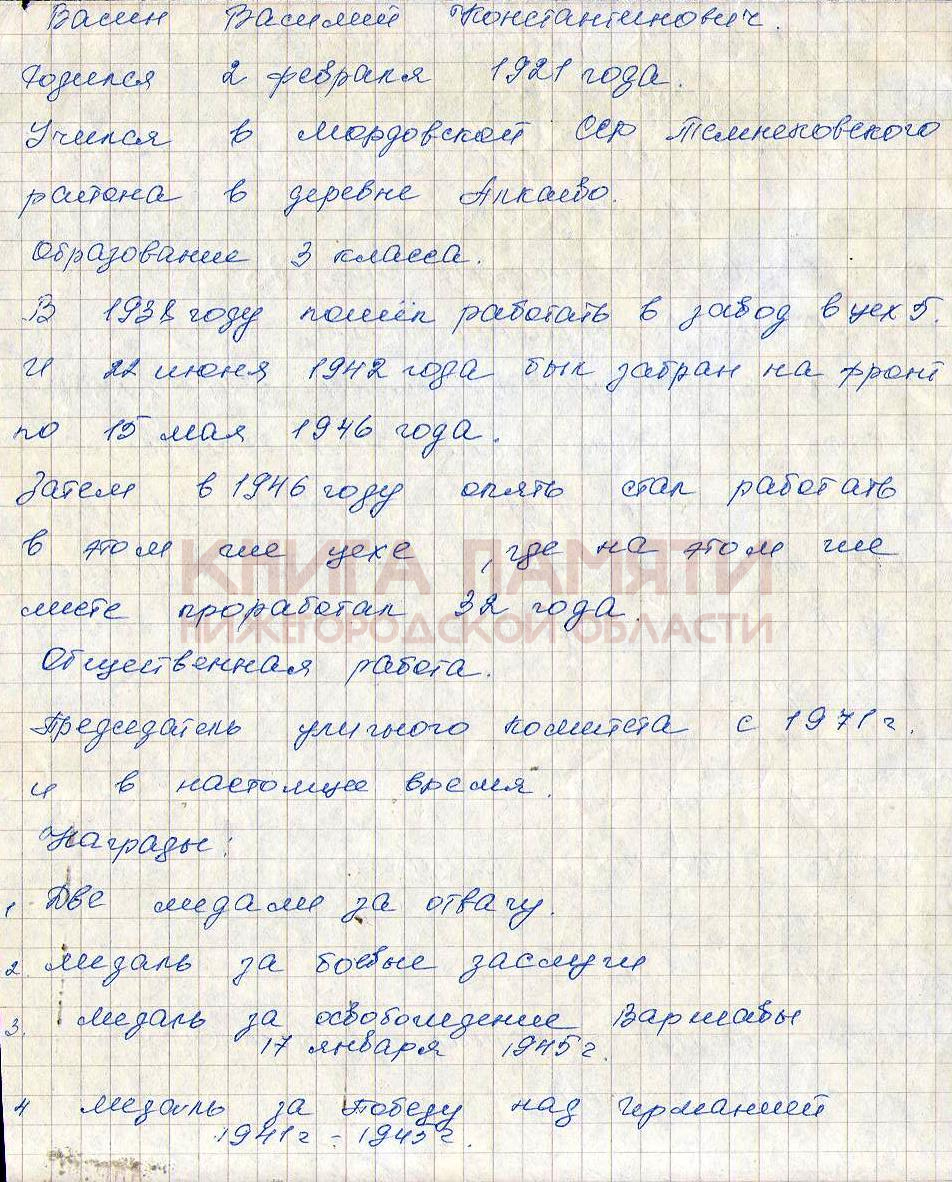 Васин Василий Константинович.
Родился 2 февраля 1921 года.
Учился в мордовской ССР Темнековского
района в деревне Алкаево.
Образование 3 класса.
В 1938 году пошёл работать в завод в цех 5.
И 22 июня 1942 года был забран на фронт
по 15 мая 1946 года.
Затем в 1946 году опять стал работать
в этом же цехе, где на этом же
месте проработал 32 года.
КНИГА ПАМЯТИ
НИЖЕГОРОДСКОЙ ОБЛАСТИ
Общественная работа.
Председатель уличного комитета с 1971 г.
и в настоящее время.
Награды:
1 Две медали за отвагу.
2. медаль за боевые заслуги
3. медаль за освобождение Варшавы
17 января 1945 г.
4 медаль за Победу над Германией
1941 г - 1945 г.